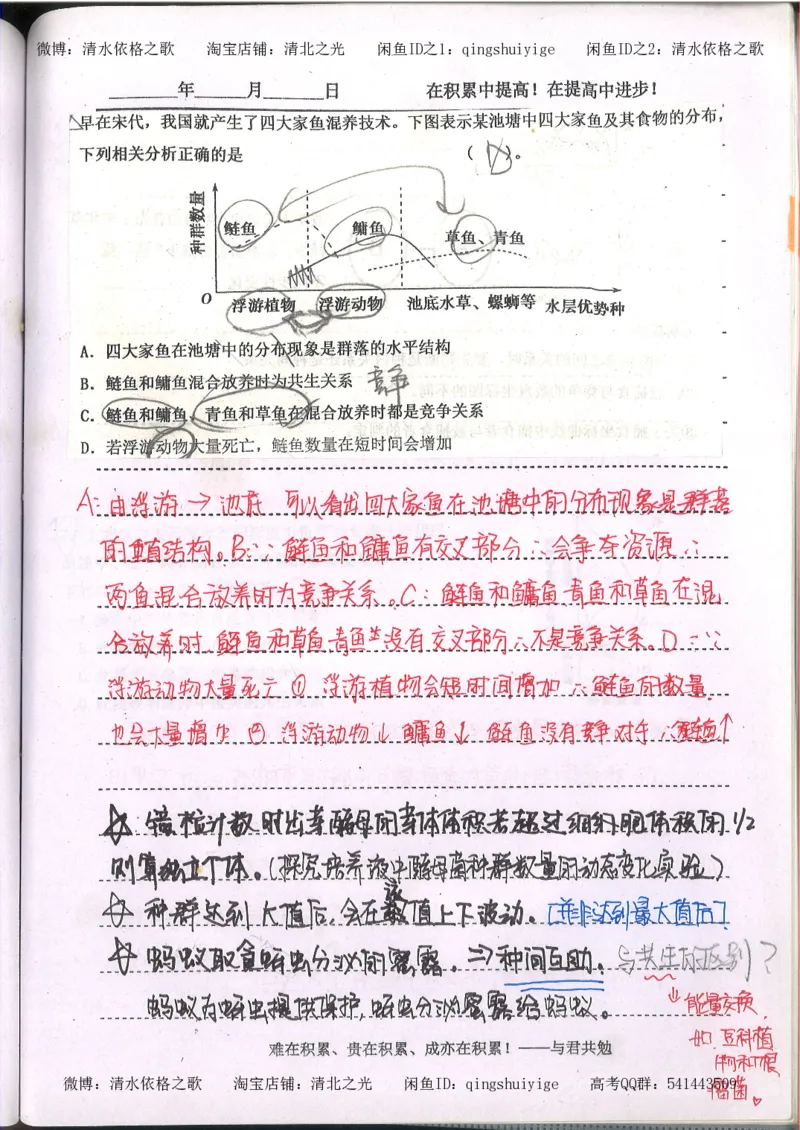 微博：清水依格之歌 淘宝店铺：清北之光 闲鱼ID之1：qingshuiyige 闲鱼ID之2：清水依格之歌
________年______月______日 在积累中提高！在提高中进步！
早在宋代，我国就产生了四大家鱼混养技术。下图表示某池塘中四大家鱼及其食物的分布，
下列相关分析正确的是 （ D ）。
种群数量
鲢鱼 鳙鱼 草鱼、青鱼
O 浮游植物 浮游动物 池底水草、螺蛳等 水层优势种
A．四大家鱼在池塘中的分布现象是群落的水平结构
B．鲢鱼和鳙鱼混合放养时为共生关系 竞争
C．鲢鱼和鳙鱼、青鱼和草鱼在混合放养时都是竞争关系
D．若浮游动物大量死亡，鲢鱼数量在短时间会增加
A：由浮游→池底 可以看出四大家鱼在池塘中的分布现象是群落
的垂直结构。B：∵鲢鱼和鳙鱼有交叉部分∴会争夺资源∴
两鱼混合放养时为竞争关系。C：鲢鱼和鳙鱼 青鱼和草鱼在混
合放养时，鲢鱼和草鱼 青鱼 没有交叉部分∴不是竞争关系。D：∵
浮游动物大量死亡 ① 浮游植物会短时间增加∴鲢鱼的数量
也会大量增加 ② 浮游动物↓ 鳙鱼↓ 鲢鱼没有竞争对手∴鲢鱼↑
镜检计数时出芽酵母的芽体体积若超过细胞体积的1/2
则算独立个体。（探究培养液中酵母菌种群数量的动态变化实验）
种群达到K值后，会在K值上下波动。[并非达到最大值后]
蚂蚁取食蚜虫分泌的蜜露。⇒种间互助。与共生的区别？
蚂蚁为蚜虫提供保护，蚜虫分泌蜜露给蚂蚁。
↓能量交换，
如：豆科植
物和根
瘤菌。
难在积累、贵在积累、成亦在积累！——与君共勉
微博：清水依格之歌 淘宝店铺：清北之光 闲鱼ID：qingshuiyige 高考QQ群：541443509